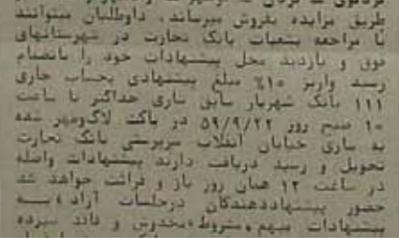 طریق مزایده بفروش میرساند. داوطلبان میتوانند
با مراجعه بشعبات بانک تجارت در شهرستانهای
فوق و بازدید محل پیشنهادات خود را بانضمام
رسید واریز ۱۰% مبلغ پیشنهادی بحساب جاری
۱۱۱ بانک شهریار سابق ساری حداکثر تا ساعت
۱۰ صبح روز ۵۹/۹/۲۲ در پاکت لاک‌ومهر شده
به ساری خیابان انقلاب سرپرستی بانک تجارت
تحویل و رسید دریافت دارند پیشنهادات واصله
در ساعت ۱۲ همان روز باز و قرائت خواهد شد
حضور پیشنهاددهندگان درجلسات آزاد، به
پیشنهادات مبهم، مشروط، مخدوش و فاقد سپرده